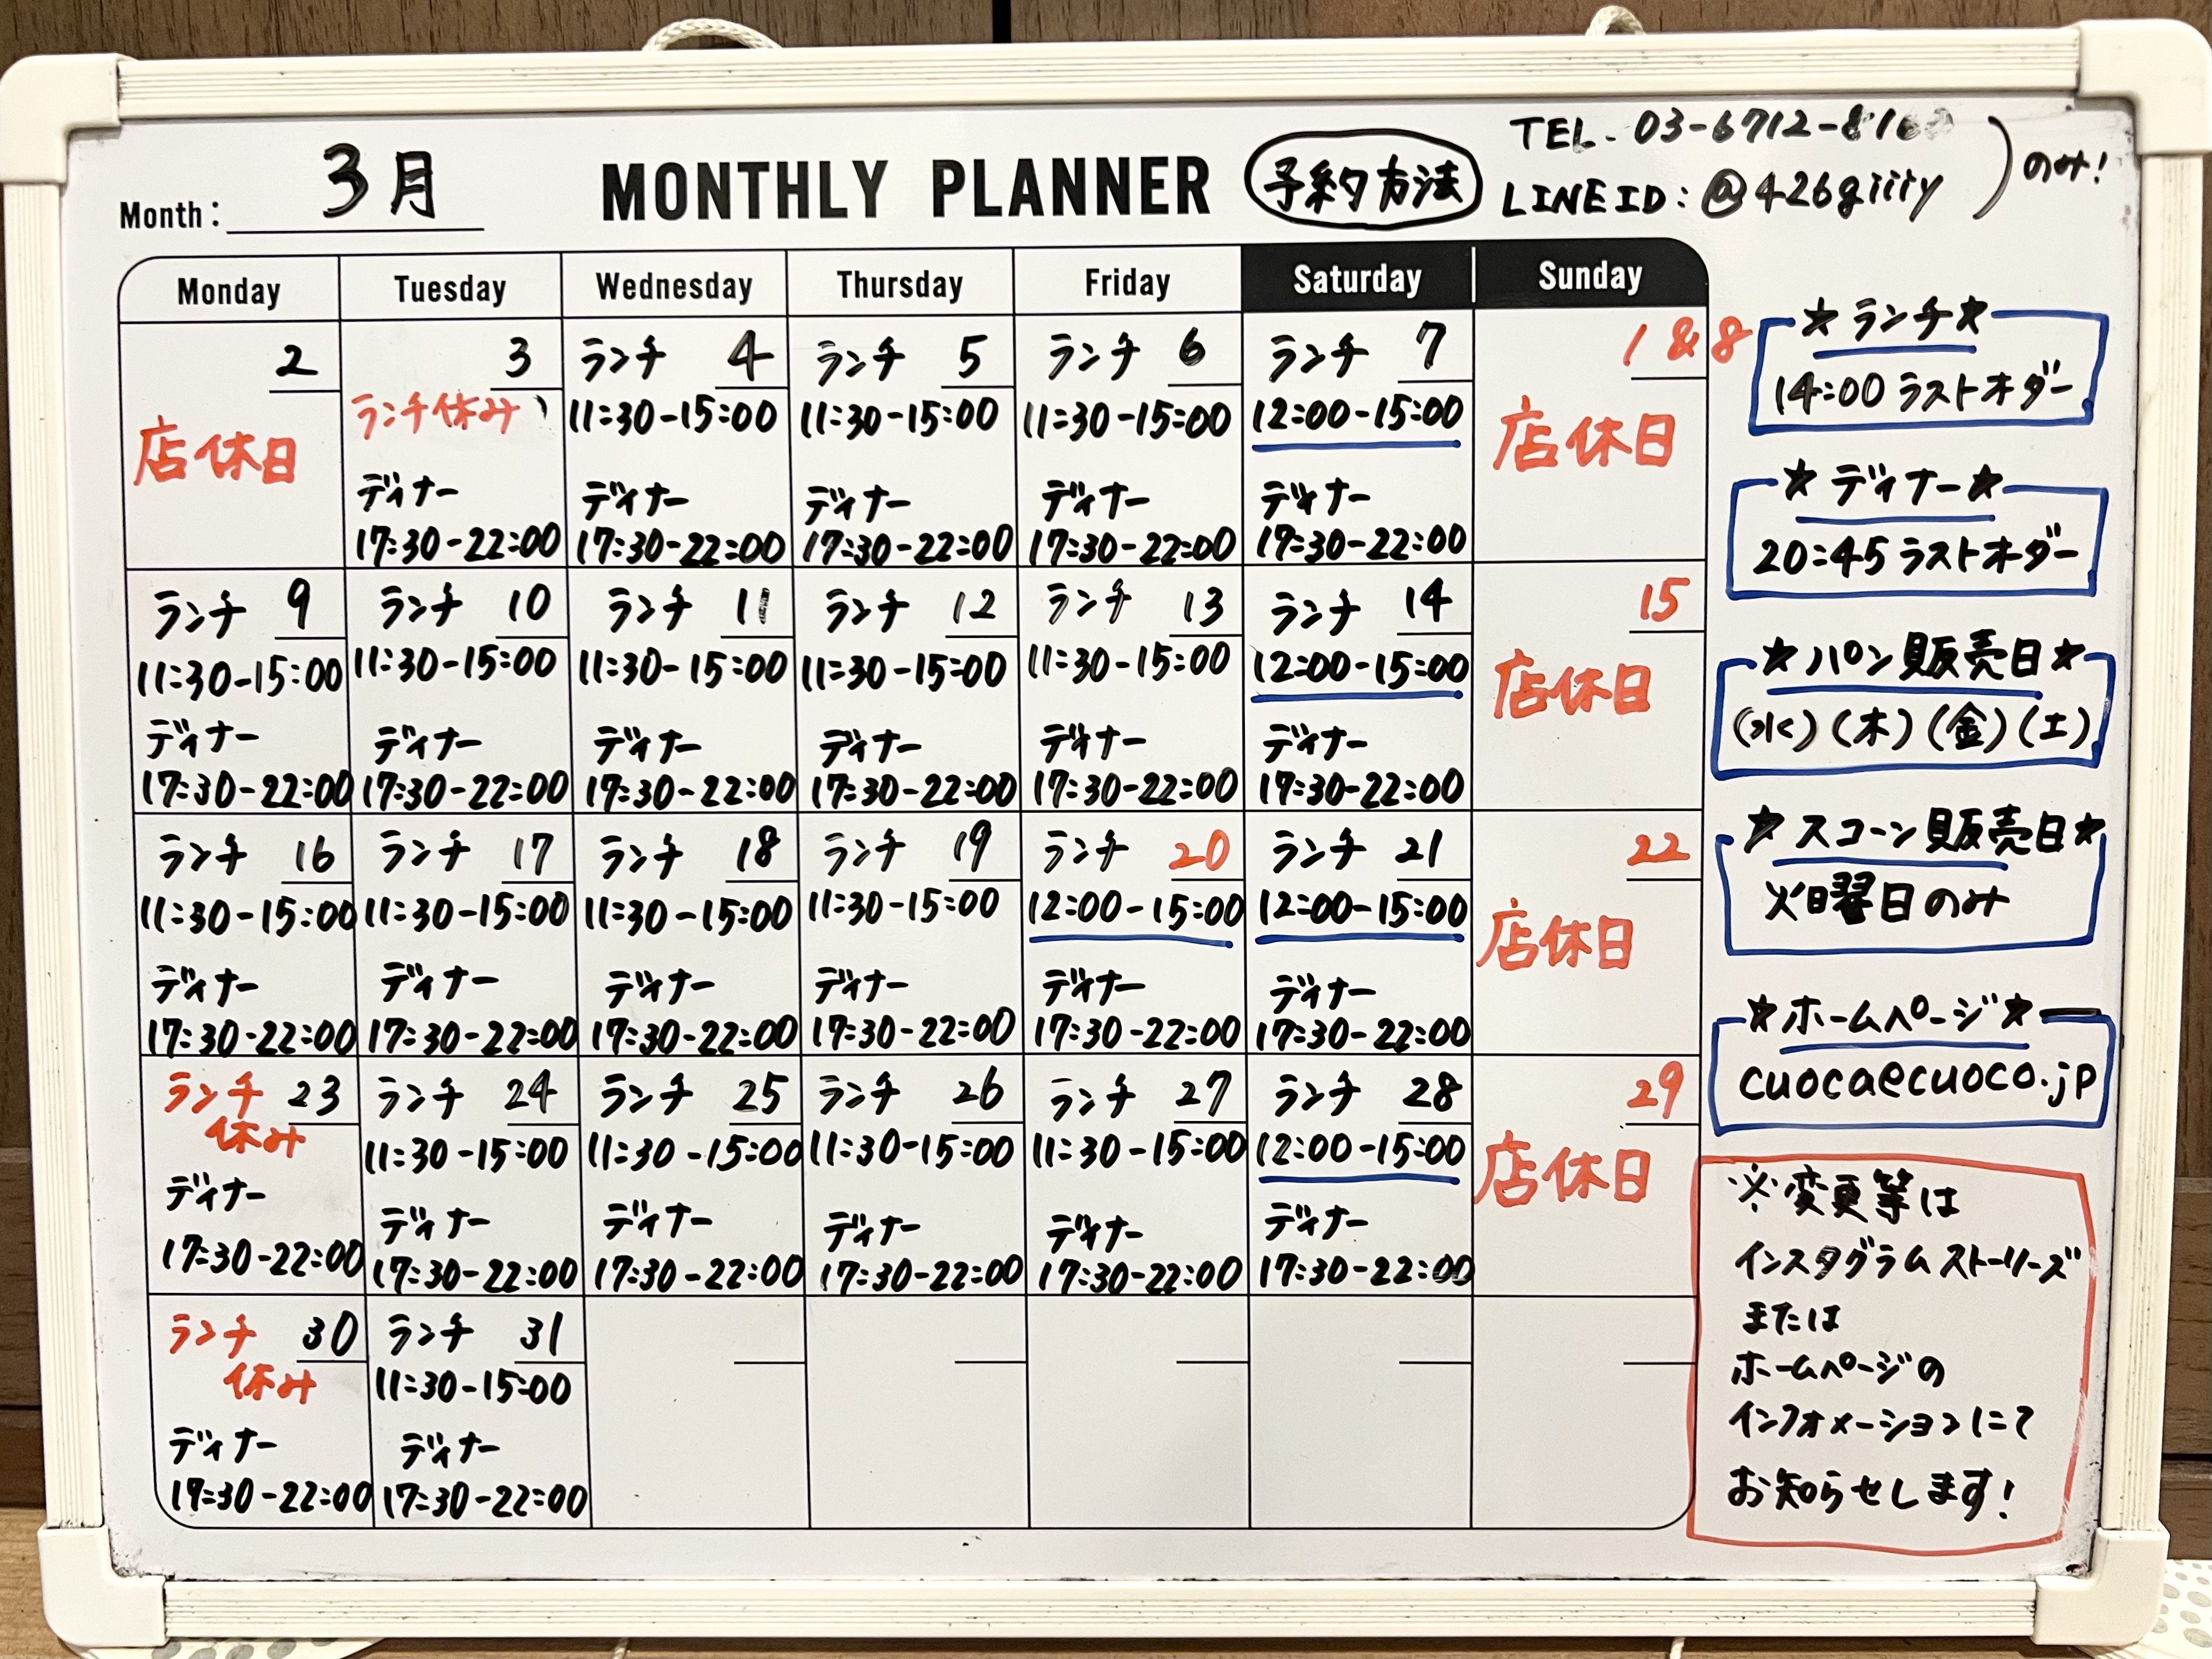 Month: 3月
MONTHLY PLANNER
予約方法
TEL. 03-6712-816
LINE ID: @426giiiy
のみ!
Monday Tuesday Wednesday Thursday Friday Saturday Sunday
2
店休日
3
ランチ休み
ディナー
17:30-22:00
ランチ 4
11:30-15:00
ディナー
17:30-22:00
ランチ 5
11:30-15:00
ディナー
17:30-22:00
ランチ 6
11:30-15:00
ディナー
17:30-22:00
ランチ 7
12:00-15:00
ディナー
17:30-22:00
1&8
店休日
ランチ 9
11:30-15:00
ディナー
17:30-22:00
ランチ 10
11:30-15:00
ディナー
17:30-22:00
ランチ 11
11:30-15:00
ディナー
17:30-22:00
ランチ 12
11:30-15:00
ディナー
17:30-22:00
ランチ 13
11:30-15:00
ディナー
17:30-22:00
ランチ 14
12:00-15:00
ディナー
17:30-22:00
15
店休日
ランチ 16
11:30-15:00
ディナー
17:30-22:00
ランチ 17
11:30-15:00
ディナー
17:30-22:00
ランチ 18
11:30-15:00
ディナー
17:30-22:00
ランチ 19
11:30-15:00
ディナー
17:30-22:00
ランチ 20
12:00-15:00
ディナー
17:30-22:00
ランチ 21
12:00-15:00
ディナー
17:30-22:00
22
店休日
ランチ 23
休み
ディナー
17:30-22:00
ランチ 24
11:30-15:00
ディナー
17:30-22:00
ランチ 25
11:30-15:00
ディナー
17:30-22:00
ランチ 26
11:30-15:00
ディナー
17:30-22:00
ランチ 27
11:30-15:00
ディナー
17:30-22:00
ランチ 28
12:00-15:00
ディナー
17:30-22:00
29
店休日
ランチ 30
休み
ディナー
17:30-22:00
ランチ 31
11:30-15:00
ディナー
17:30-22:00
★ランチ★
14:00 ラストオダー
★ディナー★
20:45 ラストオダー
★パン販売日★
(水)(木)(金)(土)
★スコーン販売日★
火曜日のみ
★ホームページ★
cuocaecuoco.jp
※変更等は
インスタグラムストーリーズ
または
ホームページの
インフォメーションにて
お知らせします!